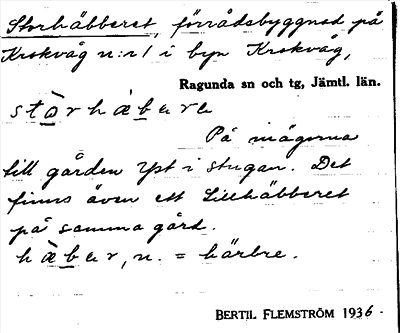 Storhäbberet, förrådsbyggnad på
Krokvåg n:r 1 i byn Krokvåg,
Ragunda sn och tg, Jämtl. län.
På mågorna
till gården Yst i stugan. Det
finns även ett Lillhäbberet
på samma gård.
= härbre.
BERTIL FLEMSTRÖM 1936.